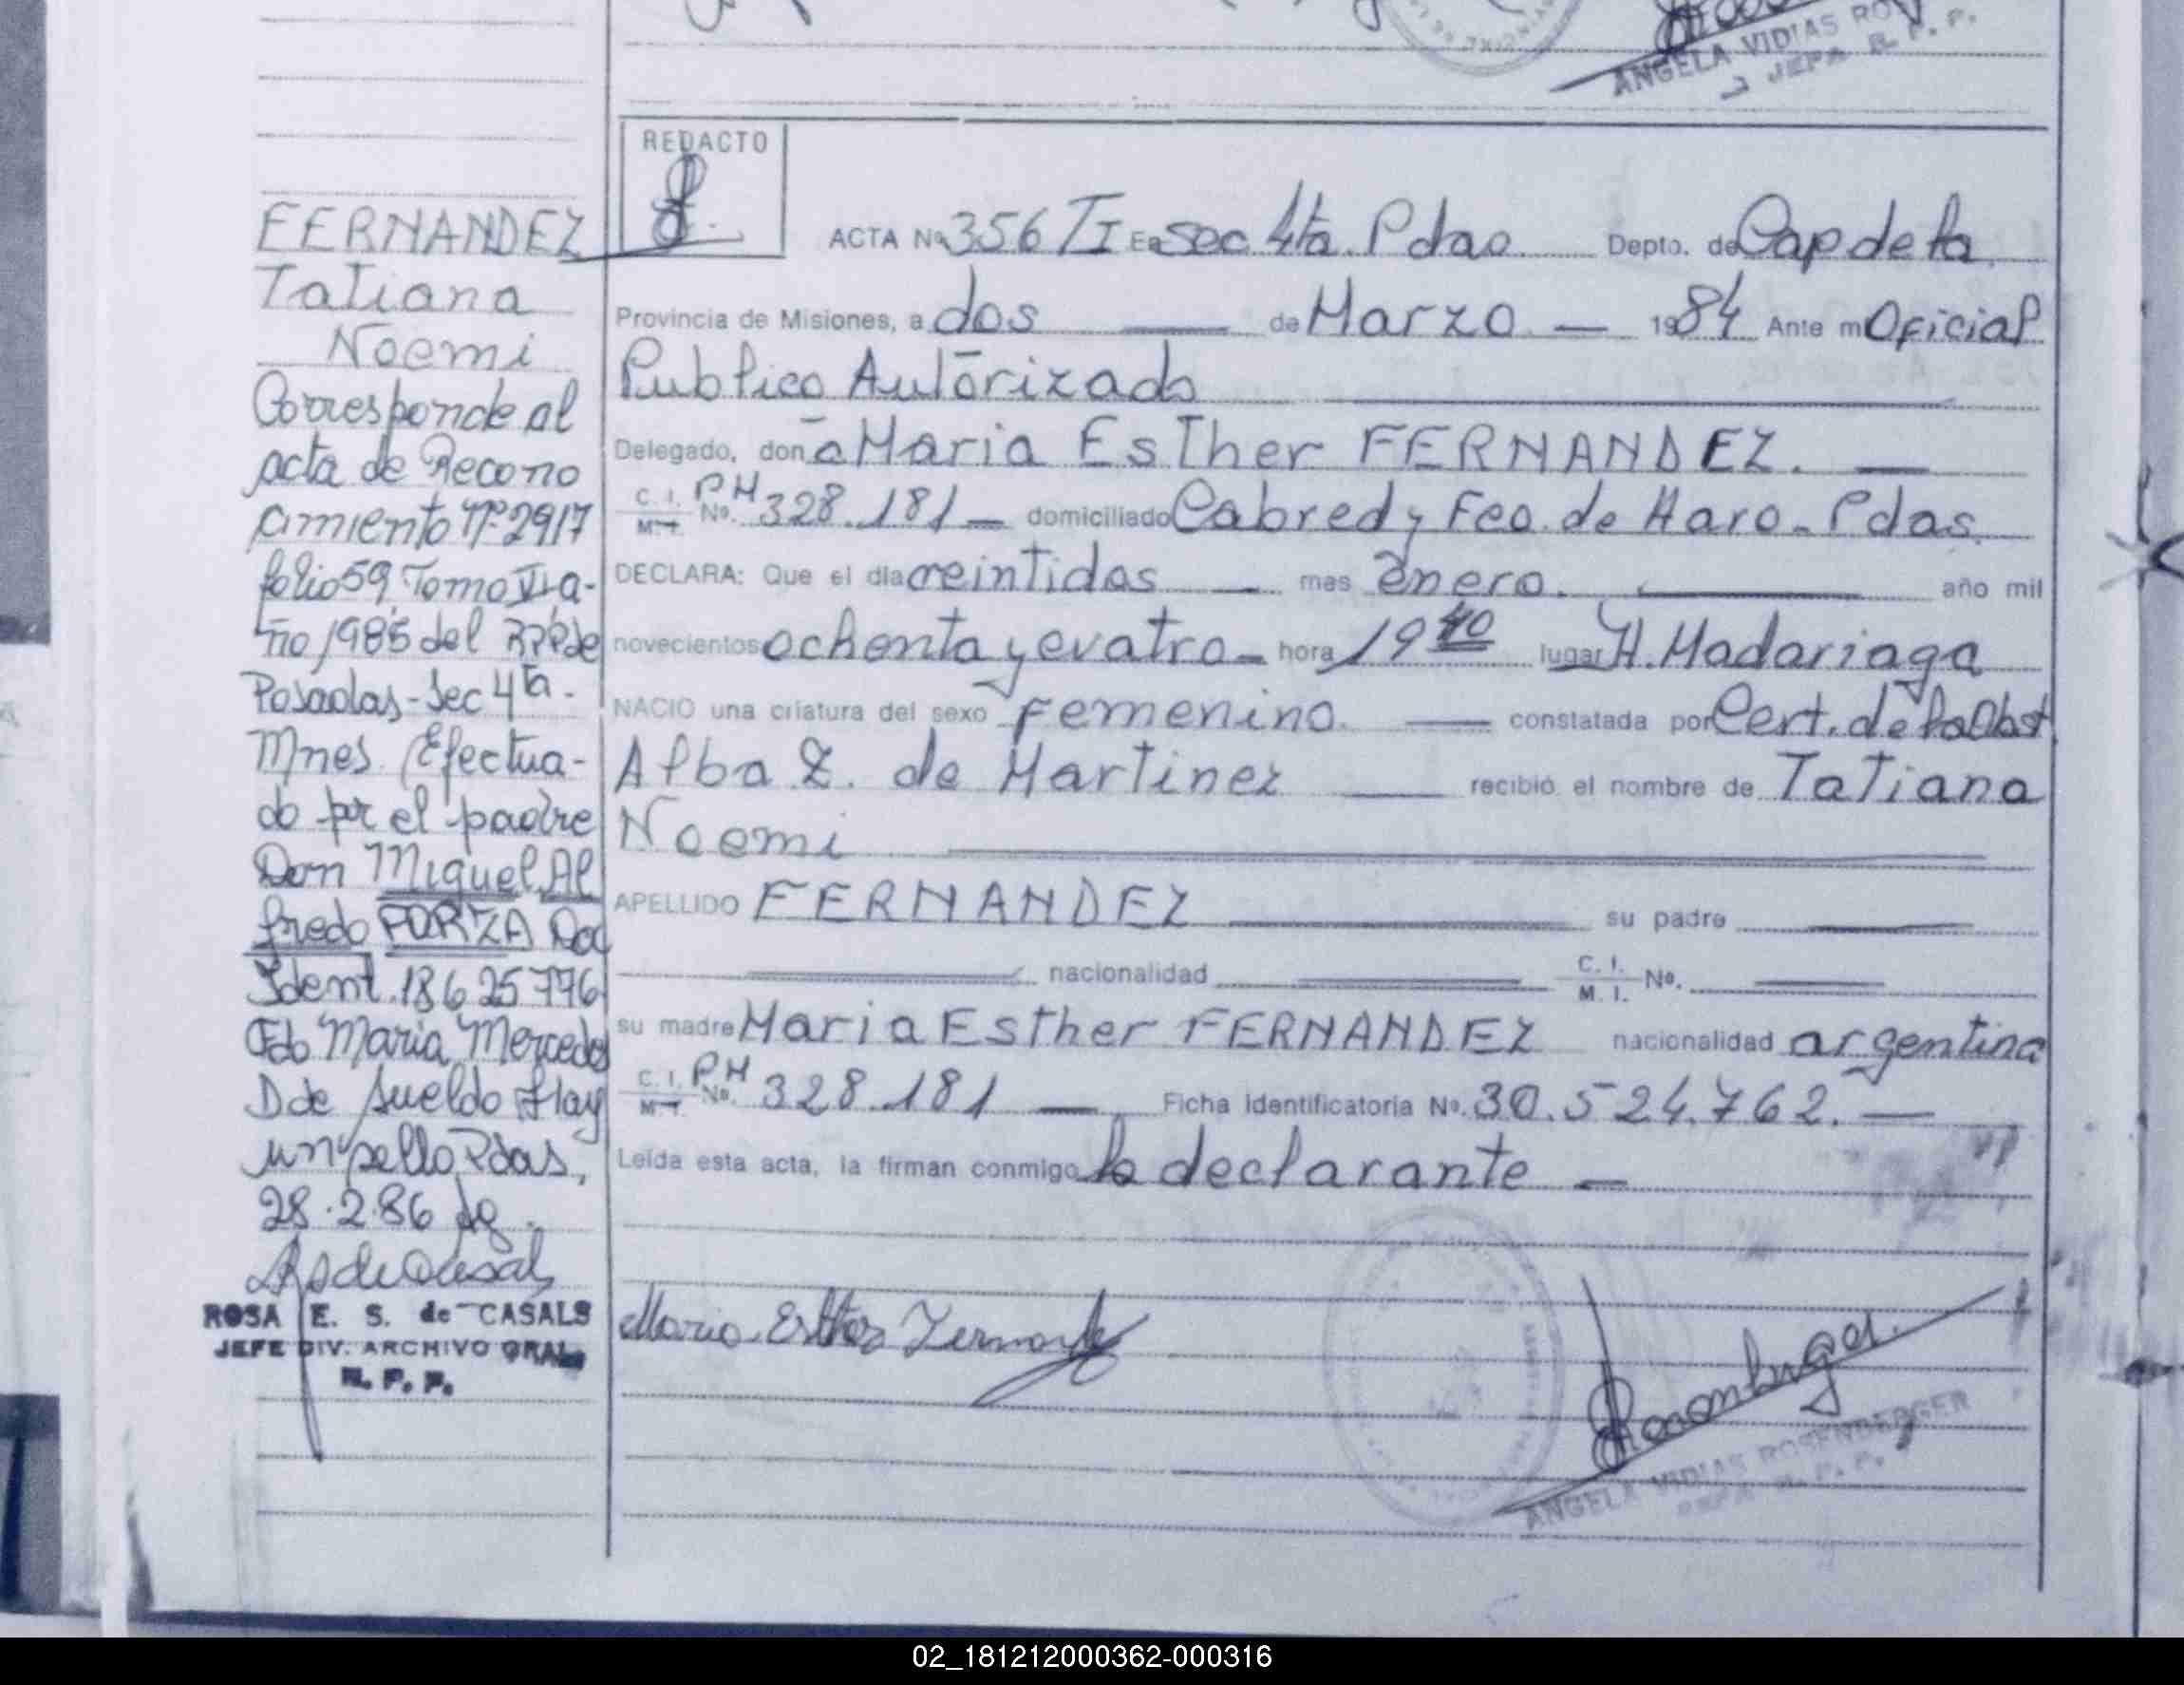 ANGELA VIDIAS RO
JEFA R. P. P.
REDACTO
FERNANDEZ
Tatiana
Noemi
Corresponde al
acta de Recono
cimiento Nº 2917
folio 59 Tomo VI a-
ño 1985 del RPP de
Posadas - Sec 4ta.
Mnes. Efectua-
do por el padre
Don Miguel Al
fredo PORZA Doc
Ident. 18625776
Fdo Maria Mercedes
D de Sueldo Hay
un sello Pdas,
28.2.86
ROSA E. S. de CASALS
JEFE DIV. ARCHIVO GRAL.
R. P. P.
ACTA Nº 356 TI En Sec 4ta. Pdas. Depto. de Cap de la
Provincia de Misiones, a dos — de Marzo — 1984 Ante mi Oficial
Publico Autorizado
Delegado, don a Maria Esther FERNANDEZ. —
C. I. M. I. PM Nº. 328.181 — domiciliado Cabred y Fco. de Haro - Pdas.
DECLARA: Que el día veintidos — mes enero. — año mil
novecientos ochenta y cuatro — hora 19 40 lugar H. Madariaga
NACIO una criatura del sexo femenino. — constatada por Cert. de la Obst
Alba Z. de Martinez — recibió el nombre de Tatiana
Noemi
APELLIDO FERNANDEZ — su padre —
— nacionalidad — C. I. M. I. Nº. —
su madre Maria Esther FERNANDEZ nacionalidad argentina
C. I. M. I. PM Nº. 328.181 — Ficha Identificatoria Nº. 30.524.762. —
Leída esta acta, la firman conmigo la declarante —
Maria Esther Fernandez
Rosenberger
ANGELA VIDIAS ROSENBERGER
JEFA R. P. P.
02_181212000362-000316